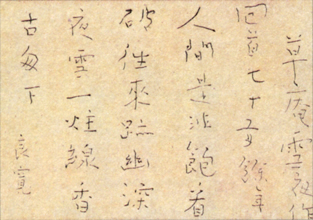 草庵雪夜作
回首七十有餘年
人間是非飽看
破往來跡幽深
夜雪一炷線香
古匆下
良寛